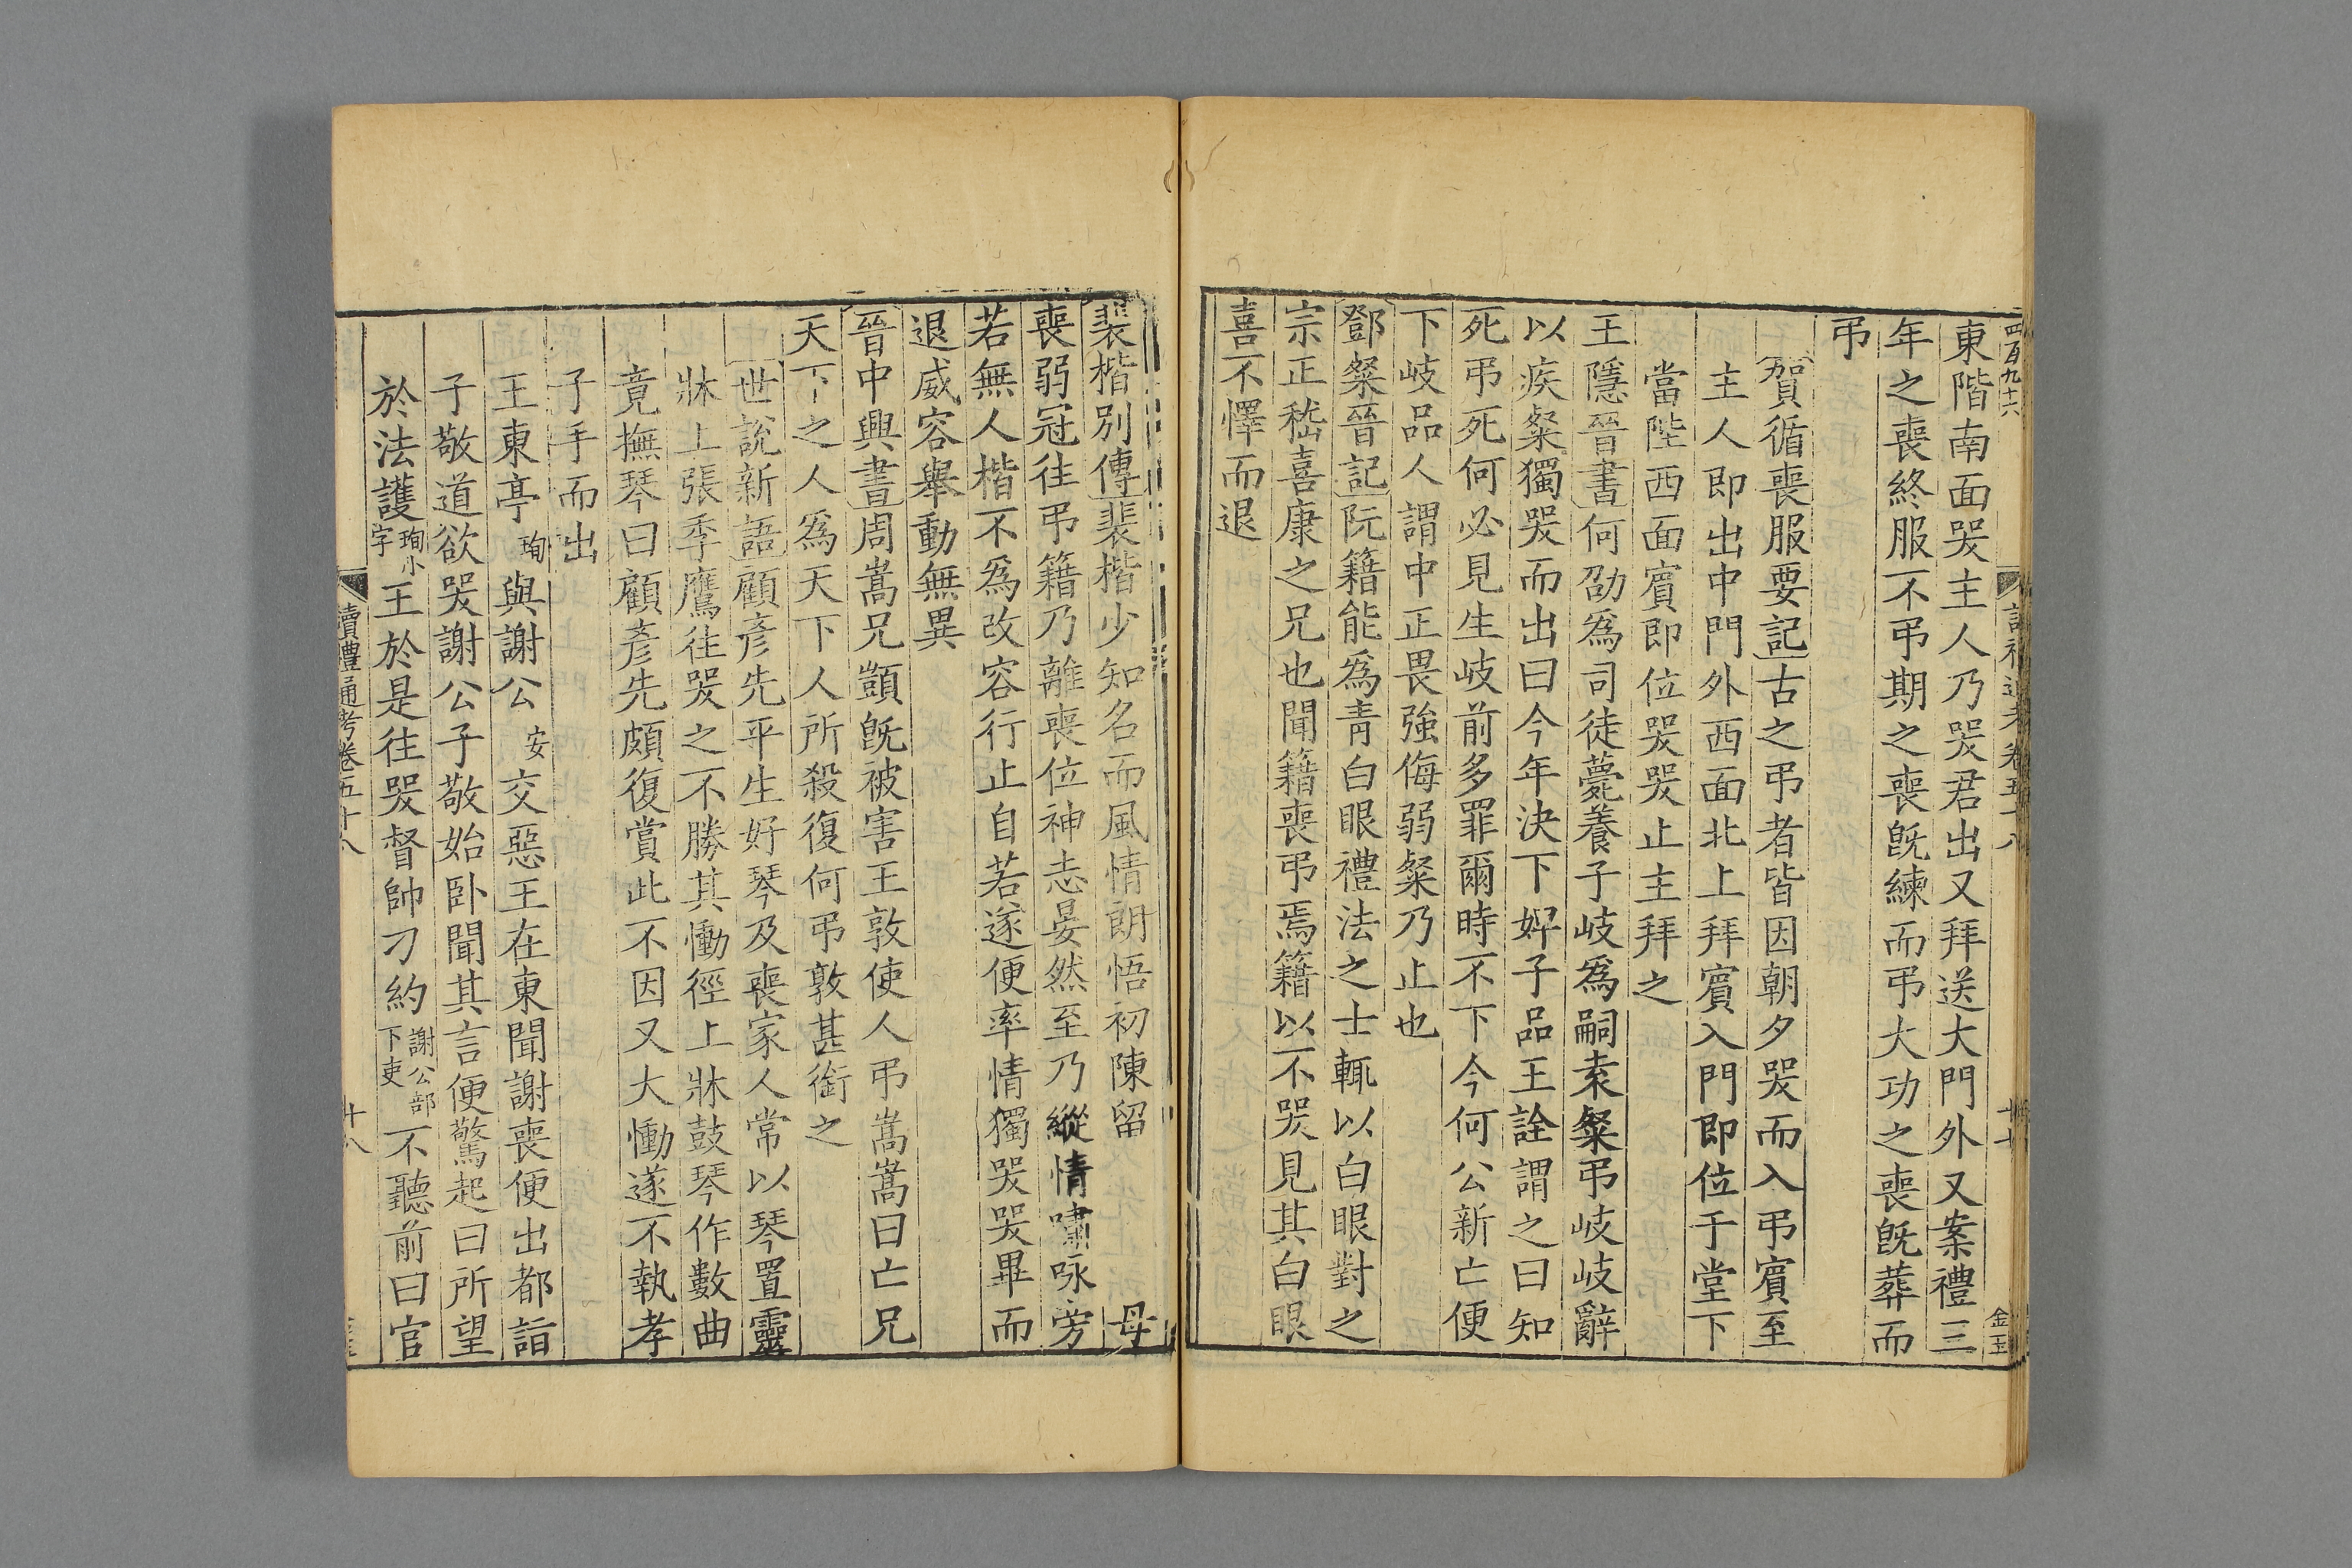 四百九十六
東階南面哭主人乃哭君出又拜送大門外又案禮三
年之喪終服不弔期之喪旣練而弔大功之喪旣葬而
弔
賀循喪服要記古之弔者皆因朝夕哭而入弔賓至
主人卽出中門外西面北上拜賓入門卽位于堂下
當陛西面賓卽位哭哭止主拜之
王隱晉書何劭爲司徒薨養子岐爲嗣袁粲弔岐岐辭
以疾粲獨哭而出曰今年決下婞子品王詮謂之曰知
死弔死何必見生岐前多罪爾時不下今何公新亡便
下岐品人謂中正畏強侮弱粲乃止也
鄧粲晉記阮籍能爲靑白眼禮法之士輒以白眼對之
宗正嵇喜康之兄也聞籍喪弔焉籍以不哭見其白眼
喜不懌而退
金玉
裴楷別傳裴楷少知名而風情朗悟初陳留 母
喪弱冠往弔籍乃離喪位神志晏然至乃縱情嘯咏旁
若無人楷不爲改容行止自若遂便率情獨哭哭畢而
退威容舉動無異
晉中興書周嵩兄顗旣被害王敦使人弔嵩嵩曰亡兄
天下之人爲天下人所殺復何弔敦甚銜之
世說新語顧彥先平生好琴及喪家人常以琴置靈
牀上張季鷹往哭之不勝其慟徑上牀鼓琴作數曲
竟撫琴曰顧彥先頗復賞此不因又大慟遂不執孝
子手而出
王東亭珣與謝公安交惡王在東聞謝喪便出都詣
子敬道欲哭謝公子敬始卧聞其言便驚起曰所望
於法護珣小字王於是往哭督帥刁約謝公部下吏不聽前曰官
讀禮通考卷五十八
十八